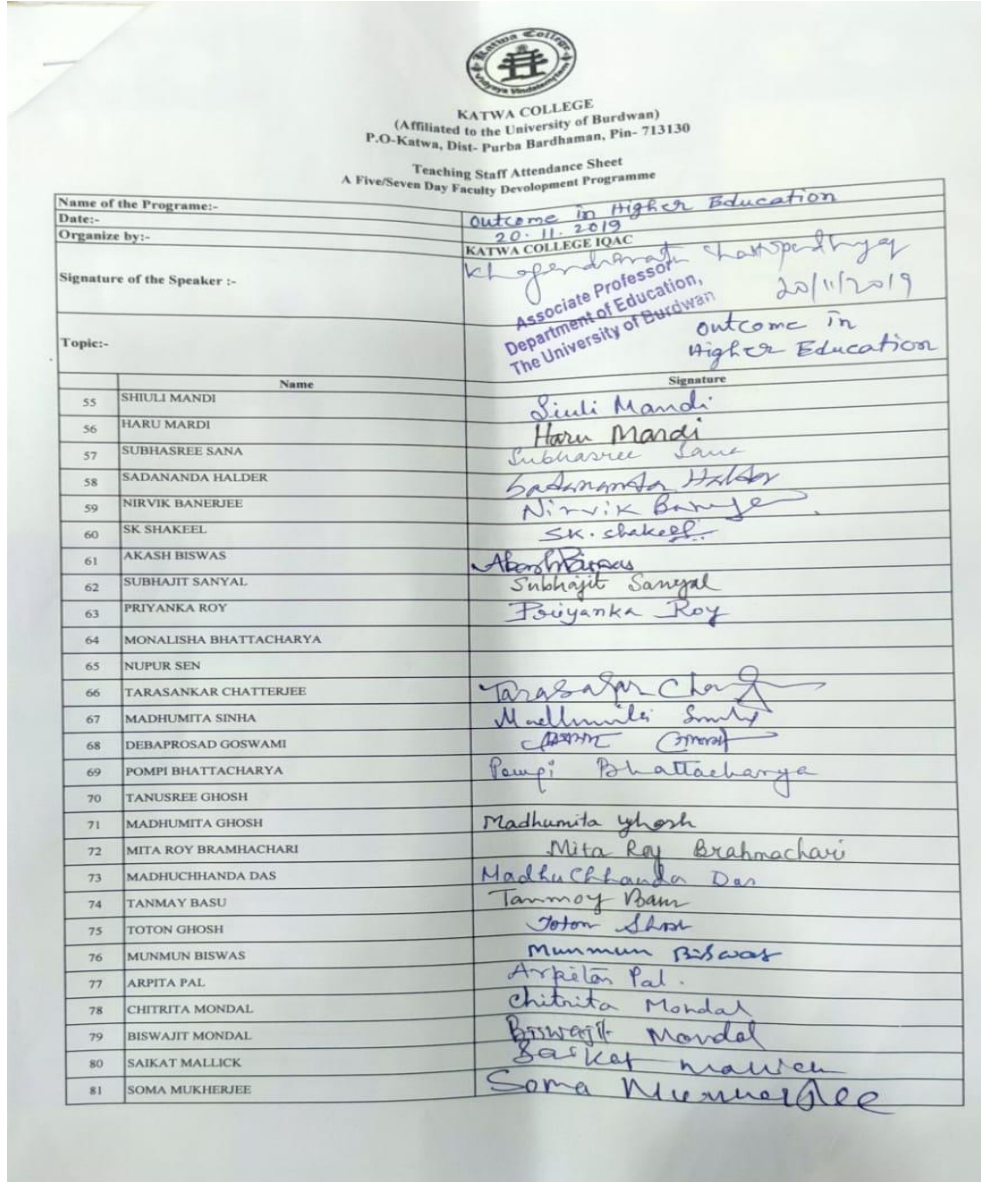 Katwa College
Vidyaya Vindatemritam
KATWA COLLEGE
(Affiliated to the University of Burdwan)
P.O-Katwa, Dist- Purba Bardhaman, Pin- 713130
Teaching Staff Attendance Sheet
A Five/Seven Day Faculty Devolopment Programme
Name of the Programe:- Outcome in Higher Education
Date:- 20.11.2019
Organize by:- KATWA COLLEGE IQAC
Signature of the Speaker :- Khagendranath Chattopadhyay
20/11/2019
Associate Professor
Department of Education,
The University of Burdwan
Topic:- Outcome in
Higher Education
Name Signature
55 SHIULI MANDI Siuli Mandi
56 HARU MARDI Haru Mardi
57 SUBHASREE SANA Subhasree Sana
58 SADANANDA HALDER Sadananda Halder
59 NIRVIK BANERJEE Nirvik Banerjee
60 SK SHAKEEL SK. Shakeel
61 AKASH BISWAS Akash Biswas
62 SUBHAJIT SANYAL Subhajit Sanyal
63 PRIYANKA ROY Priyanka Roy
64 MONALISHA BHATTACHARYA
65 NUPUR SEN
66 TARASANKAR CHATTERJEE
67 MADHUMITA SINHA Madhumita
68 DEBAPROSAD GOSWAMI
69 POMPI BHATTACHARYA Pompi Bhattacharya
70 TANUSREE GHOSH
71 MADHUMITA GHOSH Madhumita Ghosh
72 MITA ROY BRAMHACHARI Mita Roy Brahmachari
73 MADHUCHHANDA DAS Madhuchhanda Das
74 TANMAY BASU Tanmoy Basu
75 TOTON GHOSH Toton Ghosh
76 MUNMUN BISWAS Munmun Biswas
77 ARPITA PAL Arpita Pal.
78 CHITRITA MONDAL Chitrita Mondal
79 BISWAJIT MONDAL Biswajit Mondal
80 SAIKAT MALLICK Saikat Mallick
81 SOMA MUKHERJEE Soma Mukherjee